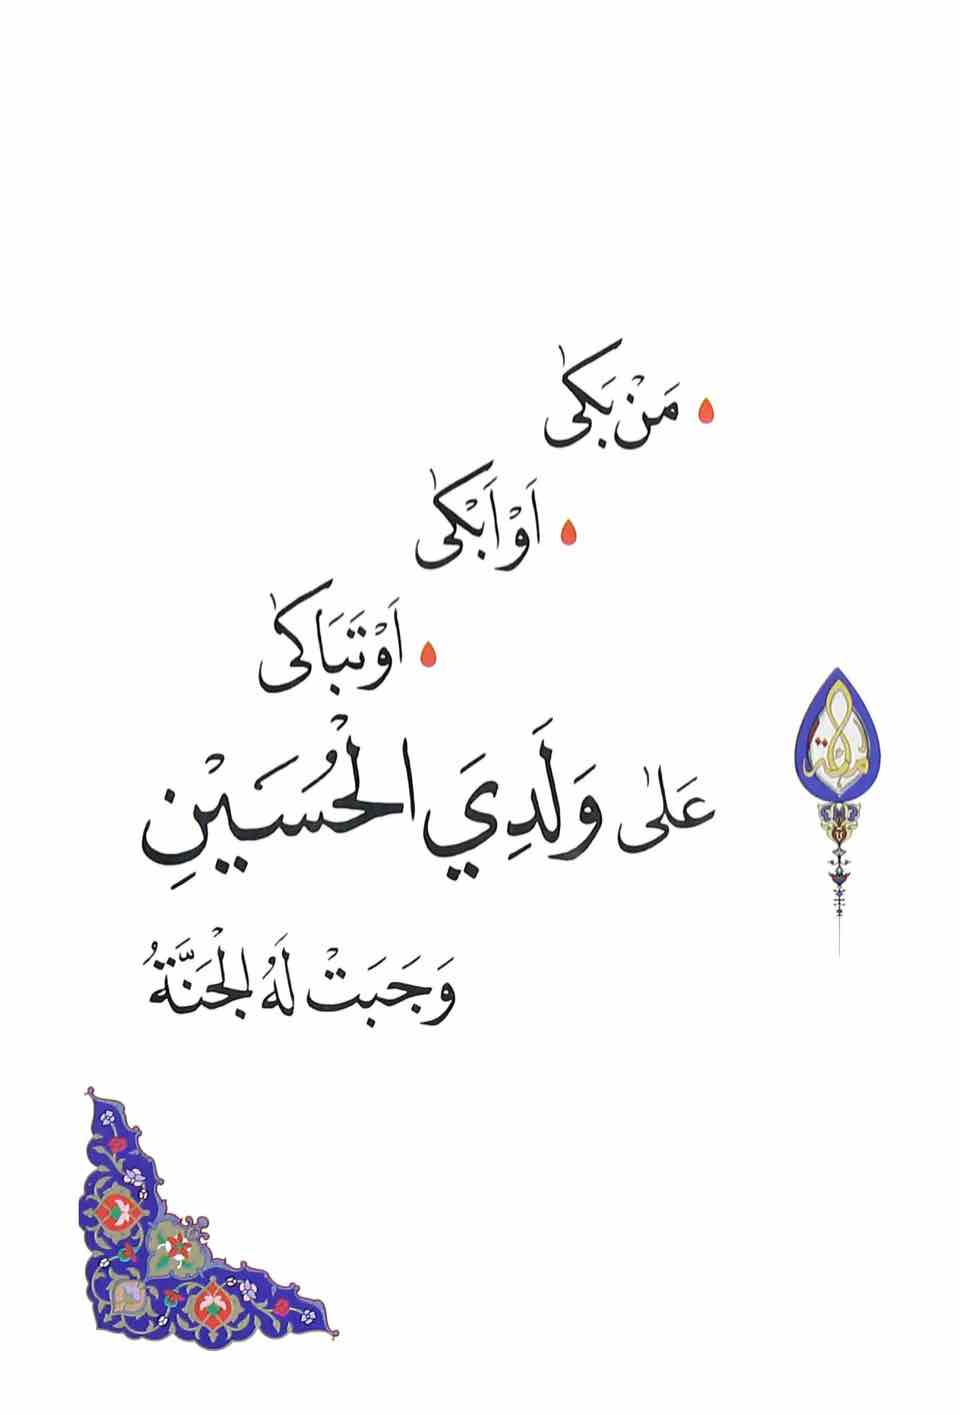 مَنْ بَكىٰ
اَوْ اَبْكىٰ
اَوْ تَبَاكىٰ
عَلىٰ وَلَدِيَ الْحُسَيْنِ
وَجَبَتْ لَهُ الْجَنَّةُ